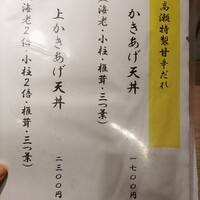 高瀬特製甘辛だれ
かきあげ天丼 一七〇〇円
(海老・小柱・椎茸・三つ葉)
上かきあげ天丼 二三〇〇円
(海老2倍・小柱2倍・椎茸・三つ葉)